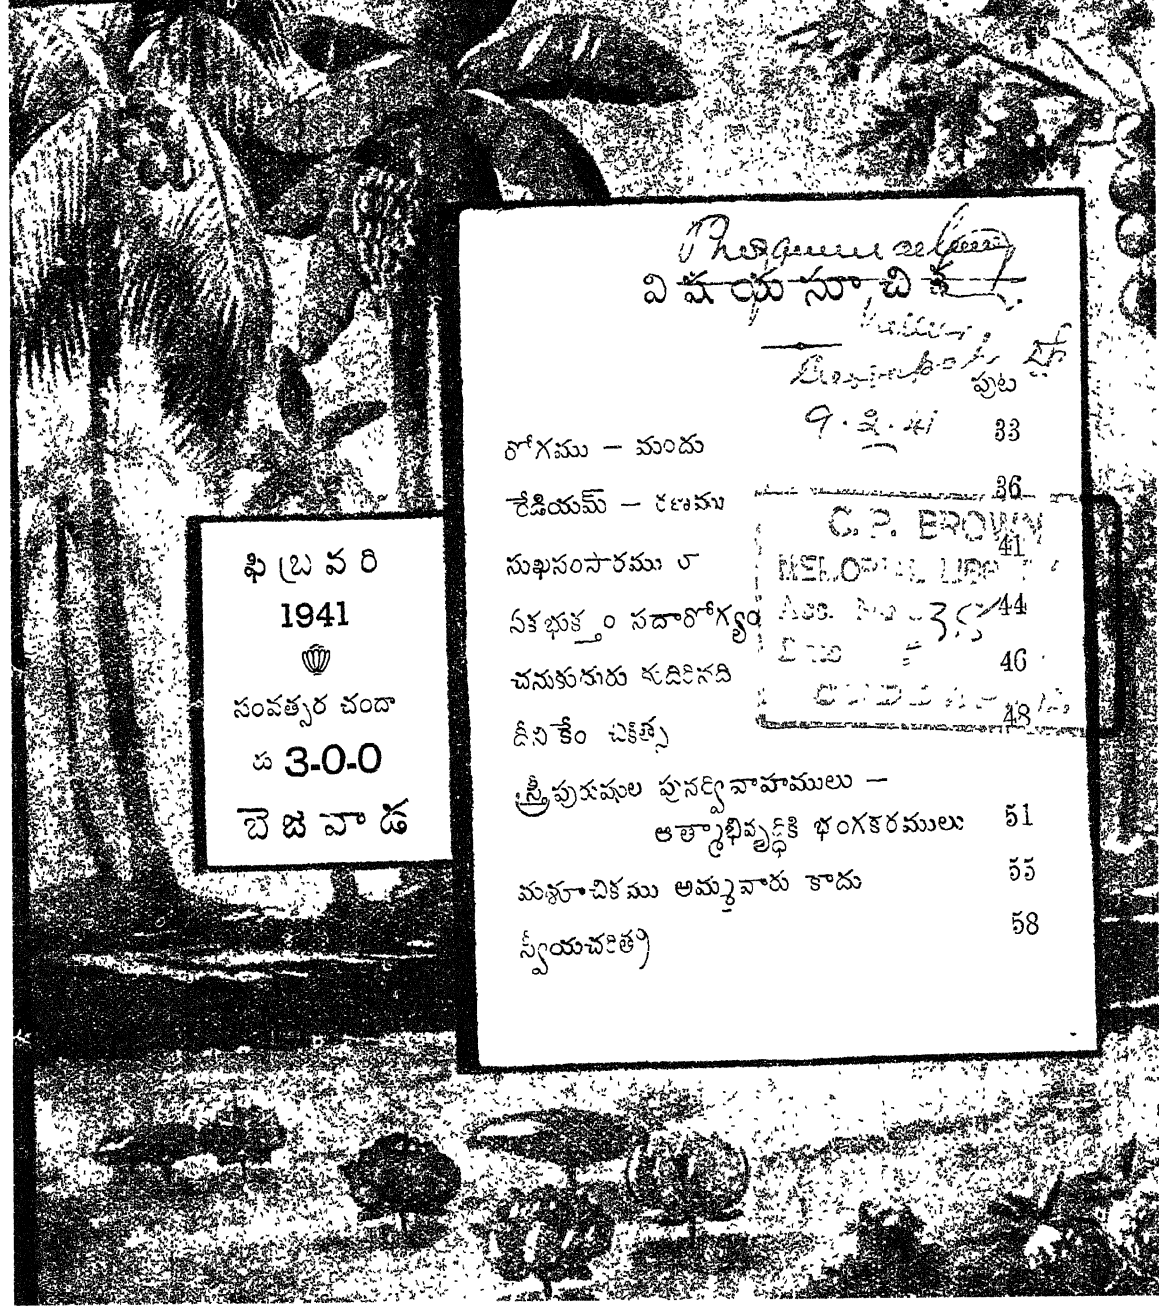 ఫిబ్రవరి
1941
సంవత్సర చందా
రు 3-0-0
బెజవాడ
విషయసూచిక
పుట
9.2.41
రోగము — మందు 33
రేడియమ్ — కణము 36
సుఖసంసారము 41
ఏకభుక్తం సదారోగ్యం 44
చనుకుదురు కుదిరినది 46
దీనికేం చికిత్స 48
స్త్రీపురుషుల పునర్వివాహములు —
ఆత్మాభివృద్ధికి భంగకరములు 51
మశూచికము అమ్మవారు కాదు 55
స్వీయచరిత్ర 58
C. P. BROWN
MEMORIAL